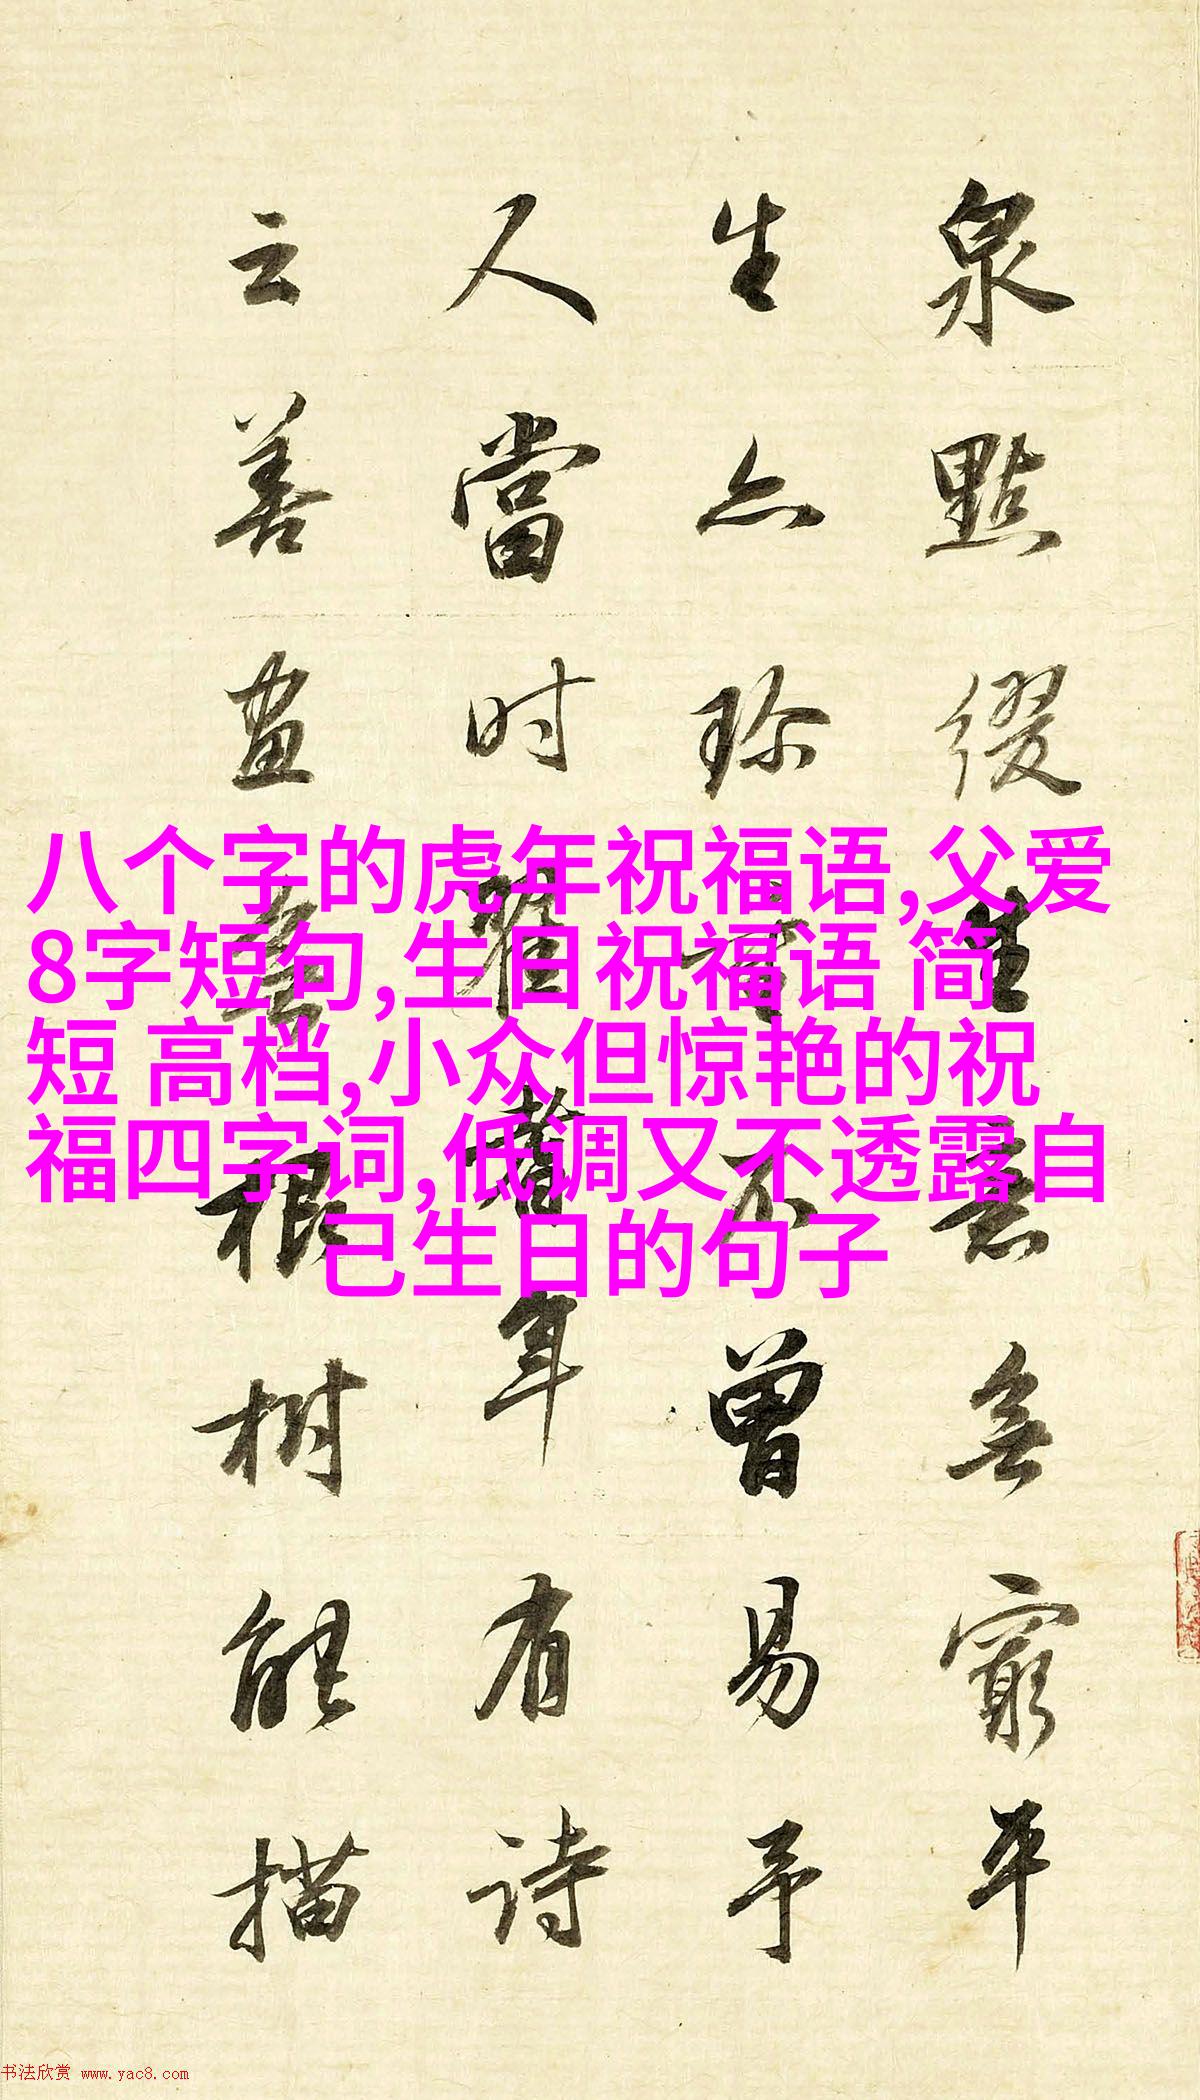 泉點綴生意無窮平
生亦珍重不曾易予
人當时耆年有詩
云善畫無根樹能描
八个字的虎年祝福语,父爱
8字短句,生日祝福语 简
短 高档,小众但惊艳的祝
福四字词,低调又不透露自
己生日的句子
书法欣赏 www.yac8.com